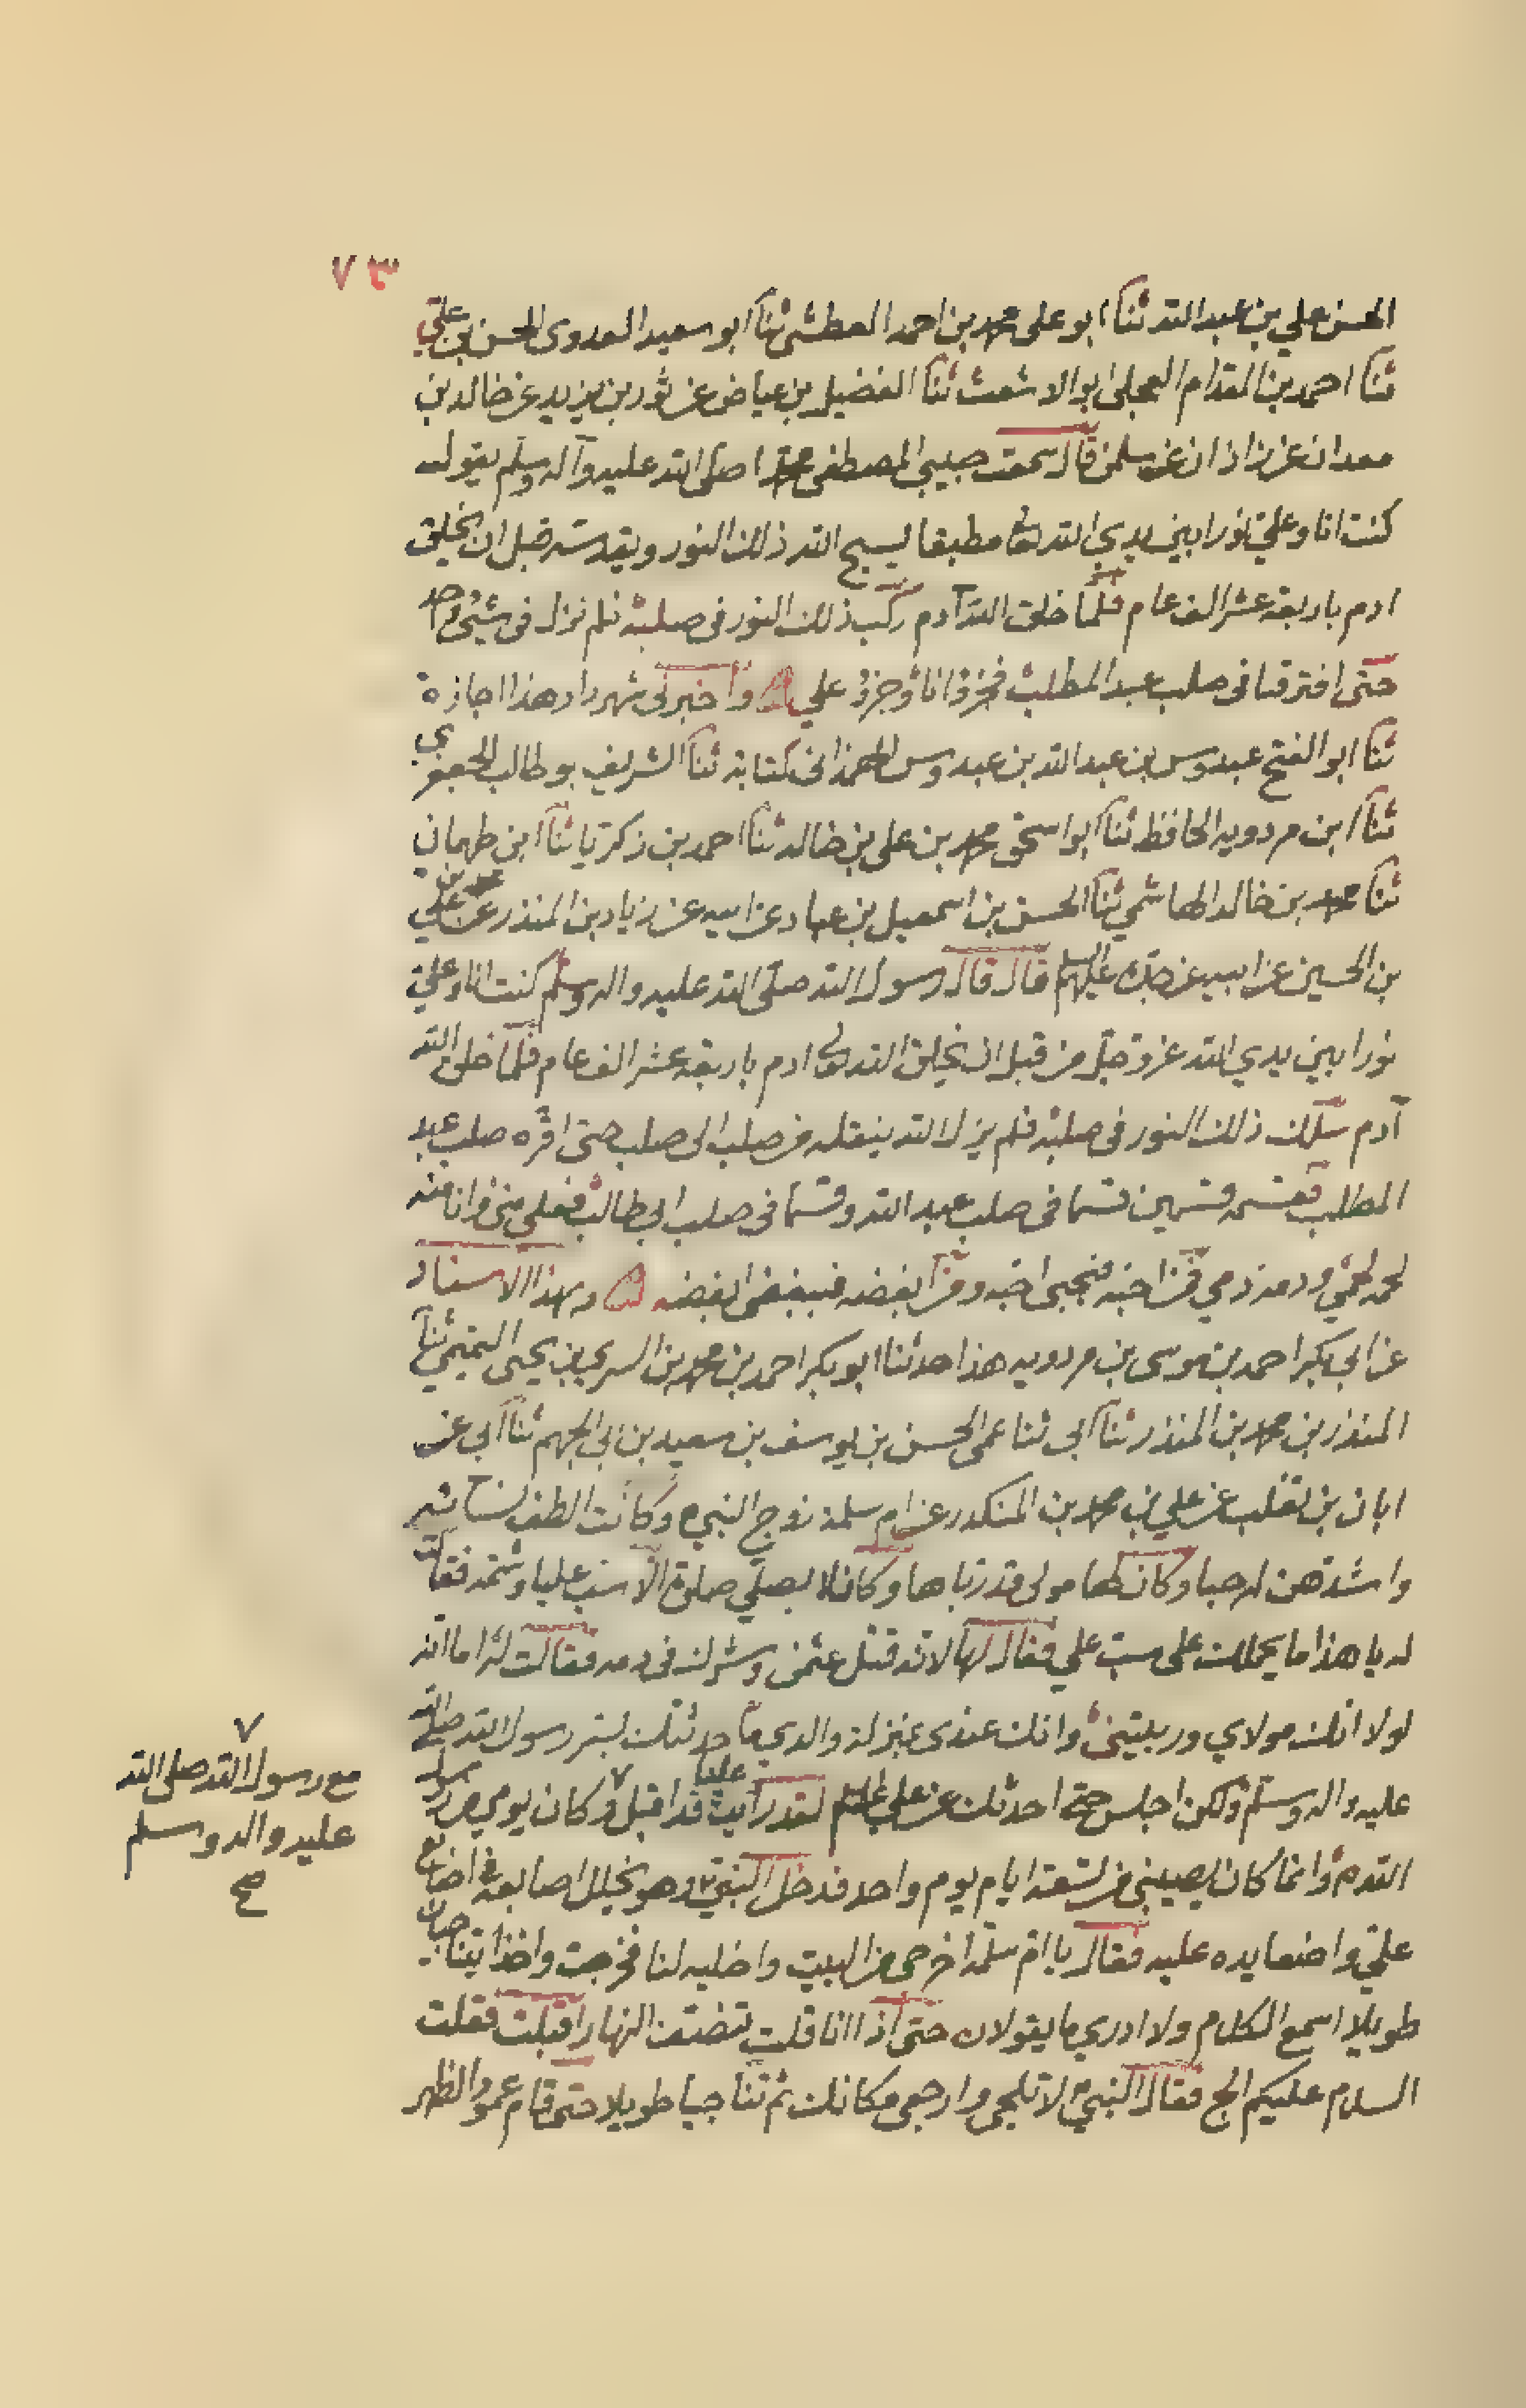 ٧٣
الحسن علي بن عبد الله ثنا ابو على محمد بن احمد العطشى ثنا ابو سعيد العدوى الحسن بن علي
ثنا احمد بن المقدام العجلى ابو الاشعث ثنا الفضيل بن عياض عن ثور بن يزيد عن خالد بن
معدان عن زاذان عن سلمن قال سمعت حبيبي المصطفى محمدا صلى الله عليه وآله وسلم يقول
كنت انا وعلي نورا بين يدي الله تعا مطبقا يسبح الله ذلك النور ويقدسه قبل ان يخلق
ادم باربعة عشر الف عام فلما خلق الله آدم ركب ذلك النور في صلبه فلم نزل في شيئ واحد
حتى افترقنا في صلب عبد المطلب فجزؤ انا وجزؤ علي واخبرنى شهردار هذا اجازة
ثنا ابو الفتح عبدوس بن عبد الله بن عبدوس الهمذانى كتابة ثنا الشريف ابو طالب الجعفري
ثنا ابن مردويه الحافظ ثنا ابو اسحق محمد بن على بن خالد ثنا احمد بن زكريا ثنا ابن طهمان
ثنا محمد بن خالد الهاشمي ثنا الحسن بن اسمعيل بن عباد عن ابيه عن زياد بن المنذر عن محمد بن علي
بن الحسين عن ابيه عن جده عليهم السلم قال قال رسول الله صلى الله عليه واله وسلم كنت انا وعلي
نورا بين يدي الله عز وجل من قبل ان يخلق الله تعالى ادم باربعة عشر الف عام فلما خلق الله
آدم سلك ذلك النور في صلبه فلم يزل الله ينقله من صلب الى صلب حتى اقره صلب عبد
المطلب فقسمه قسمين قسما في صلب عبد الله وقسما في صلب ابى طالب فعلي منى وانا منه
لحمه لحمي ودمه دمي فمن احبه فبحبى احبه ومن ابغضه فببغضى ابغضه وبهذا الاسناد
عن ابي بكر احمد بن موسى بن مردويه هذا حدثنا ابو بكر احمد بن محمد بن السري بن يحيى التميمي ثنا
المنذر بن محمد بن المنذر ثنا ابى ثنا عمى الحسن بن يوسف بن سعيد بن ابي الجهم ثنا ابي عن
ابان بن تغلب عن علي بن محمد بن المنكدر عن ام سلمة زوج النبي ص وكانت الطف نسائه
واشدهن له حبا وكان لها مولى قد رباها وكان لا يصلي صلوة الا سب عليا وشتمه فقالت
له يا هذا ما يحملك على سب علي فقال لها لانه قتل عثمن وشرك في دمه فقالت له اما انه
لولا انك مولاي وربيتنى وانك عندى بمنزلة والدي ما حدثتك بسر رسول الله صلى الله
عليه واله وسلم ولكن اجلس حتى احدثك عن علي عليه السلم لقد رايت عليا قد اقبل وكان يومي من رسول
الله ص وانما كان يصيبنى من تسعة ايام يوم واحد فدخل النبي وهو يخلل اصابعه في اصابع
علي واضعا يده عليه فقال يا ام سلمة اخرجى من البيت واخليه لنا فخرجت واخذا يتناجيان
طويلا اسمع الكلام ولا ادري ما يقولان حتى اذا انا قلت تنصف النهار اقبلت فقلت
السلام عليكم الج فقال النبي لا تلجى وارجعى مكانك ثم تناجيا طويلا حتى قام عمود الظهر
٧
مع رسول الله صلى الله
عليه واله وسلم
صح